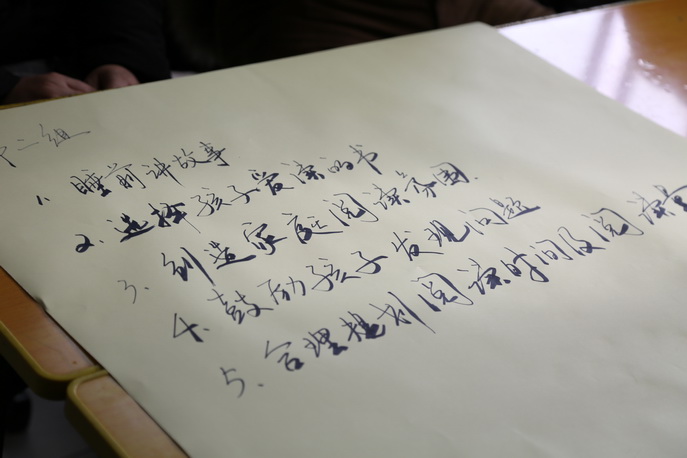 十二组
1. 睡前讲故事
2. 选择孩子爱读的书
3. 创造家庭阅读氛围.
4. 鼓励孩子发现问题
5. 合理规划阅读时间及阅读量